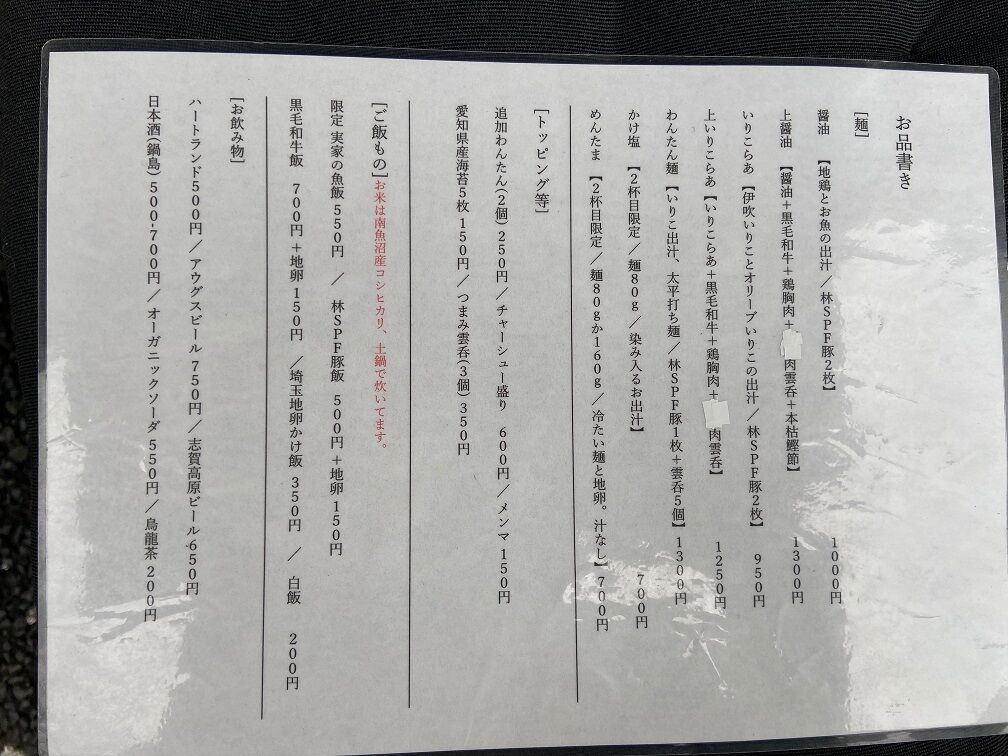 お品書き
[麺]
醤油 【地鶏とお魚の出汁／林SPF豚2枚】 1000円
上醤油 【醤油＋黒毛和牛＋鶏胸肉＋ 肉雲呑＋本枯鰹節】 1300円
いりこらあ 【伊吹いりことオリーブいりこの出汁／林SPF豚2枚】 950円
上いりこらあ【いりこらあ＋黒毛和牛＋鶏胸肉＋ 肉雲呑】 1250円
わんたん麺 【いりこ出汁、太平打ち麺／林SPF豚1枚＋雲呑5個】1300円
かけ塩 【2杯目限定／麺80g／染み入るお出汁】 700円
めんたま 【2杯目限定／麺80gか160g／冷たい麺と地卵。汁なし】 700円
[トッピング等]
追加わんたん(2個)250円／チャーシュー盛り 600円／メンマ 150円
愛知県産海苔5枚 150円／つまみ雲呑(3個)350円
[ご飯もの]お米は南魚沼産コシヒカリ、土鍋で炊いてます。
限定 実家の魚飯 550円 ／ 林SPF豚飯 500円＋地卵 150円
黒毛和牛飯 700円＋地卵 150円 ／埼玉地卵かけ飯 350円 ／ 白飯 200円
[お飲み物]
ハートランド500円／アウグスビール 750円／志賀高原ビール 650円
日本酒(鍋島)500-700円／オーガニックソーダ 550円／烏龍茶 200円